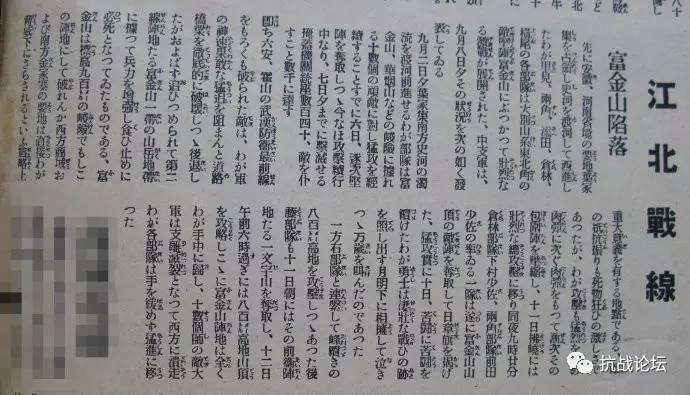 江北戰線
富金山陷落
先に安徽、河南省境の要地葉家
集を占領し史河を渡河して西進し
兩角、添田、倉林、
の各部隊は大別山系東北角の
敵陣地富金山にぶつかつて壯烈な
激戰が展開された、中支軍は、
九月八日夕その狀況を次の如く發
表してゐる
九月二日夕葉家集南方史河の濁
流を渡河前進せるわが部隊は富
金山、華山などの峻險に據れ
る十數個の頑敵に對し猛攻を經
續することすでに六日、逐次堅
陣を奪取しつゝ今なほ攻擊續行
中なり、七日夕までに擊滅せる
掩蓋機關銃座數百四十、敵を仆
すこと數千に達す
卽ち六安、霍山の武漢防衞最前線
をもろくも破られた敵は、わが軍
の神速果敢な猛追を阻まんと道路
橋梁を徹底的に破壞しつゝ後退し
たがおよばず追ひつめられて第二
線陣地たる富金山一帶の山岳地帶
に據つて兵力を增强し食ひ止めに
必死となつてゐたものである、富
金山は標高九百米の峻險でもしこ
の陣地にして破れんか西方商城お
よび南方金家寨の要地は直接わが
脚下にさらされるといふ戰略上
重大意義を有する地點である
の抵抗振りも死物狂ひの激し
あつたが、わが攻擊も猛烈を
肉彈に次ぐ肉彈をもつて漸次その
包圍陣を壓縮し、十一日拂曉には
壯烈な總攻擊に移り同夜九時半分
倉林部隊下村少佐、兩角部隊前田
少佐の率ゐる一隊は遂に富金山山
頂の敵陣を奪取して日章旗を揭げ
た、猛攻實に十日、苦鬪に苦鬪を
續けたわが勇士は凄壯な戰ひの跡
を照し出す月明下に相擁して泣き
つゝ万歲を叫んだのであつた
一方右部隊と連繫して峰續きの
八百米高地を攻擊しつゝあつた後
藤部隊も十一日朝にはその前衞陣
地たる一文字山を奪取し、十二日
午前六時過ぎには八百米高地山頂
を攻略しこゝに富金山陣地は全く
わが手中に歸し、十數個師の敵大
軍は支離滅裂となつて西方に潰走
わが各部隊は手を緩めず猛進に移
つた
抗战论坛